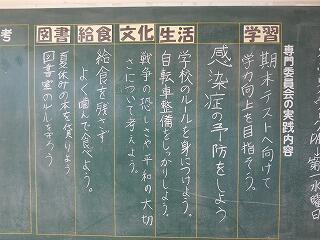 専門委員会の実践内容
学習
期末テストへ向けて
学力向上を目指そう。
感染症の予防をしよう
生活
学校のルールを身につけよう。
自転車整備をしっかりしよう。
文化
戦争の恐しさや平和の大切
さについて考えよう。
給食
給食を残さず
よく噛んで食べよう。
図書
夏休みの本を借りよう
図書室のルールを守ろう
考